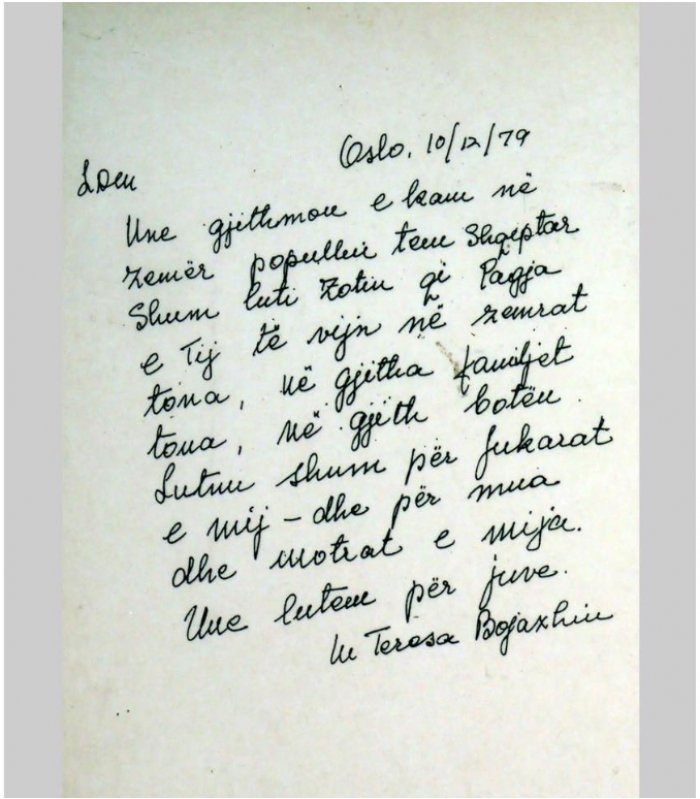 Oslo, 10/12/79
LDM
Une gjithmon e kam në
zemër popullin tem Shqiptar
Shum luti Zotin qi Paqja
e Tij të vijn në zemrat
tona, në gjitha familjet
tona, në gjith botën.
Lutnu shum për fukarat
e mij – dhe për mua
dhe motrat e mija.
Une lutem për juve.
M Teresa Bojaxhiu